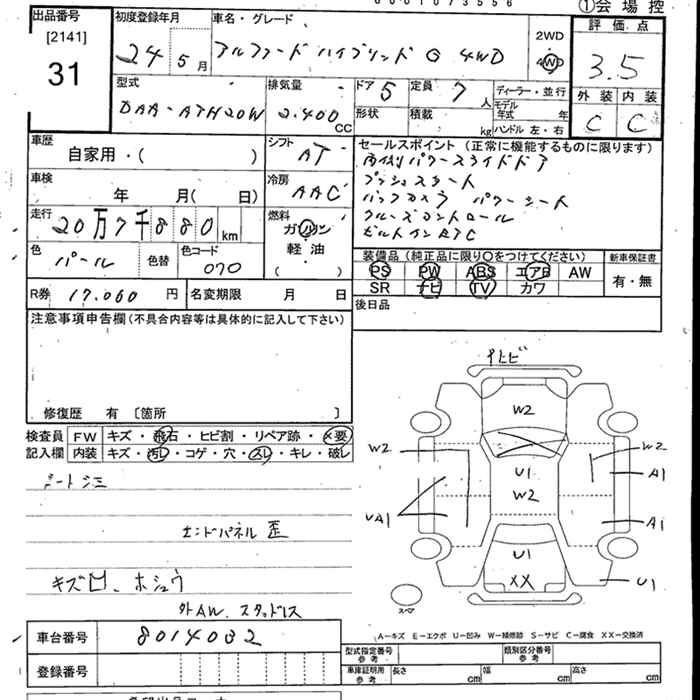 0001073556
①会場控
出品番号
[2141]
31
初度登録年月
24 5月
車名・グレード
アルファードハイブリッド G 4WD
2WD
4WD
評価点
3.5
外装 内装
C C
型式
DAA-ATH20W
排気量
2.400 CC
ドア 5
定員 7人
形状
積載 kg
ディーラー・並行
モデル年式 年
ハンドル 左・右
車歴
自家用・( )
シフト
AT
車検
年 月( 日)
冷房
AAC
走行
20万7千880km
燃料
ガソリン
軽油
( )
色
パール
色替
色コード
070
セールスポイント(正常に機能するものに限ります)
両側パワースライドドア
プッシュスタート
バックカメラ パワーシート
クルーズコントロール
ビルトインETC
装備品(純正品に限り〇をつけてください)
PS PW ABS エアB AW
SR ナビ TV カワ
新車保証書
有・無
R券 17.060円
名変期限 月 日
後日品
注意事項申告欄(不具合内容等は具体的に記入して下さい)
修復歴 有 〔箇所 〕
検査員
記入欄
FW キズ・飛石・ヒビ割・リペア跡・×要
内装 キズ・汚レ・コゲ・穴・スレ・キレ・破レ
シートシミ
エンドパネル歪
キズ凹、ホシュウ
外AW、スタッドレス
W2
W2
W2
A1
U1
W2
UA1
A1
U1
XX
U1
スペア
A-キズ E-エクボ U-凹み W-補修跡 S-サビ C-腐食 XX-交換済
車台番号
8014032
登録番号
型式指定番号
参考
類別区分番号
参考
車庫証明用
参考
長さ cm
幅 cm
高さ cm